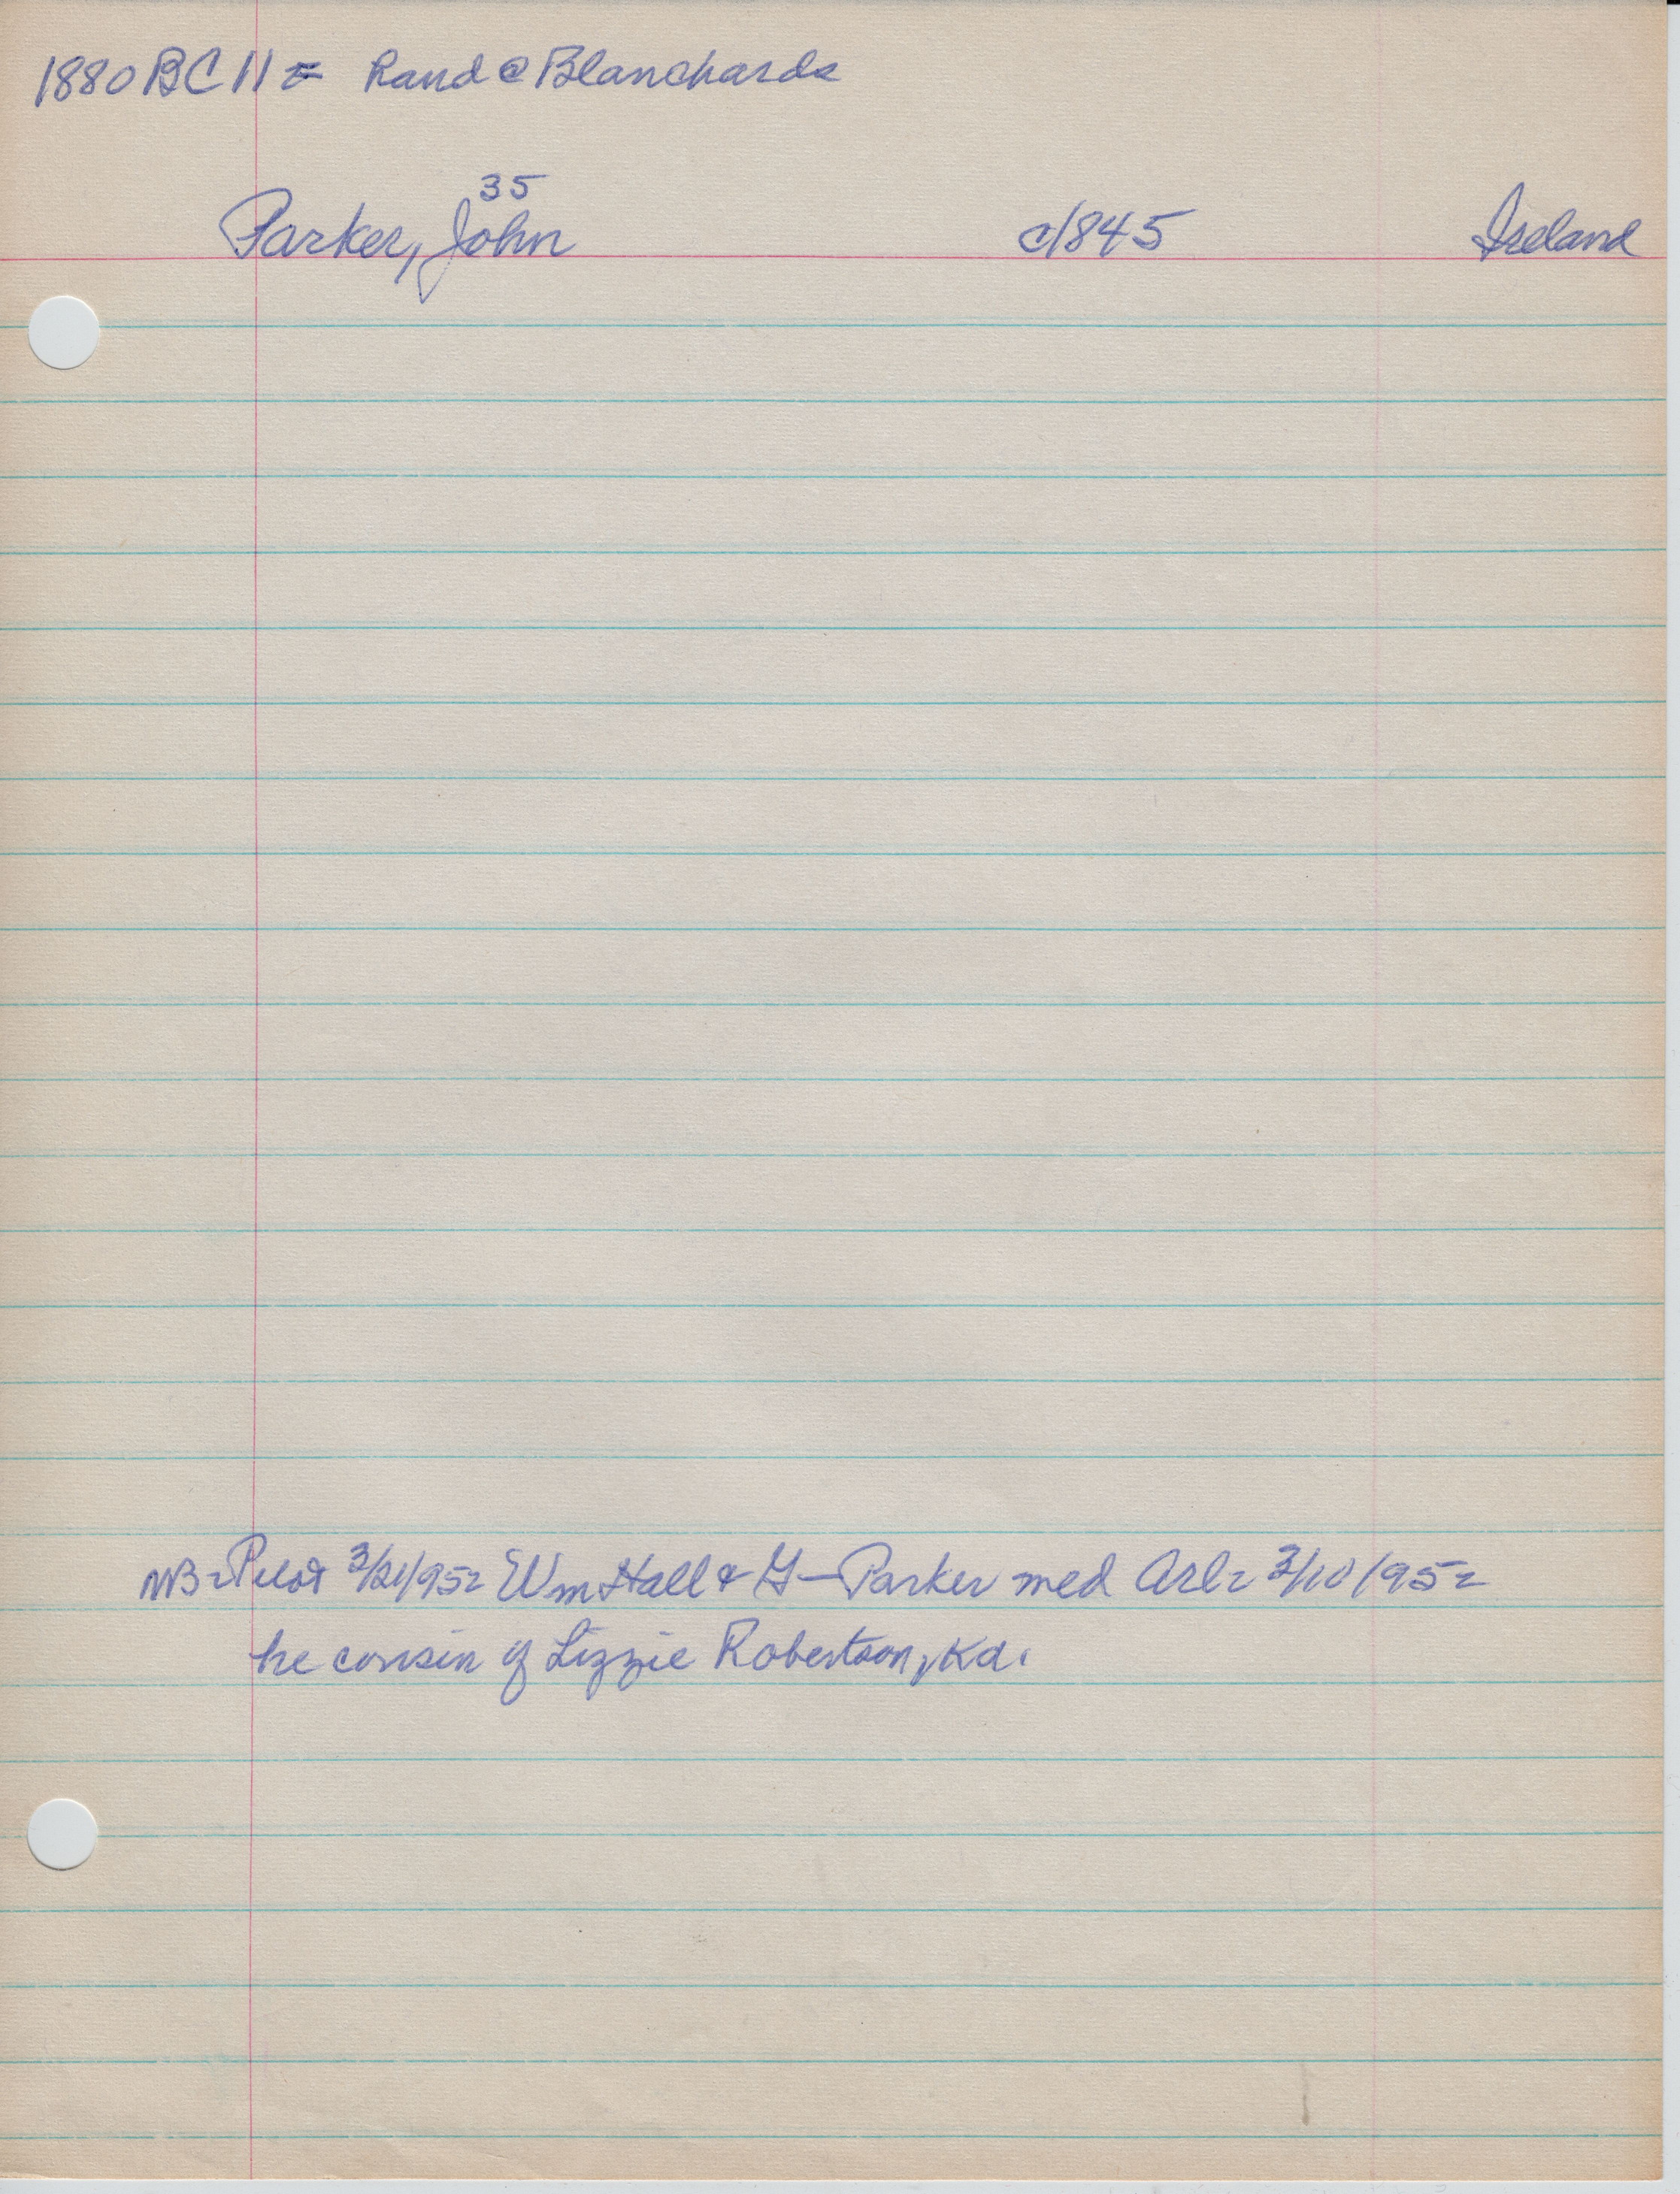 1880 BC 11 = Rand @ Blanchards
35
Parker, John c1845 Ireland
NB- Pilot 3/21/95- Wm Hall & G— Parker med Arl- 3/10/95-
he cousin of Lizzie Robertson, Kd.